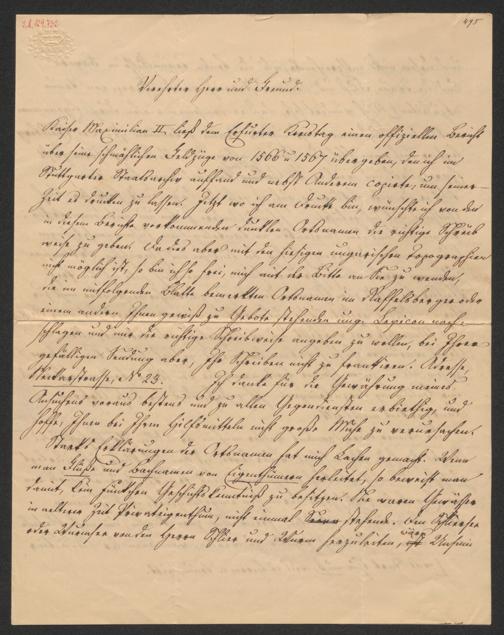 495
Verehrter Herr und Freund.
Kaiser Maximilian II. ließ dem Erfurter Kreistag einen offiziellen Bericht
über seine schmählichen Feldzüge von 1566 u 1567 übergeben, den ich im
Stuttgarter Staatsarchiv auffand und nebst Anderem copirte, um seiner-
zeit es drucken zu lassen. Jetzt wo ich am Drucke bin, wünschte ich von den
in diesem Berichte vorkommenden dunklen Ortsnamen die richtige Schreib
weise zu geben. Da das aber mit den hiesigen ungarischen Topographien
nicht möglich ist, so bin ich so frei, mich mit der Bitte an Sie zu wenden,
die im mitfolgenden Blatte bemerkten Ortsnamen im Raffelsberger oder
einem andern Ihnen gewiß zu Gebote stehenden ung. Lexicon nach-
schlagen und mir die richtige Schreibweise angeben zu wollen, bei Ihrer
gefälligen Sendung aber, Ihr Schreiben nicht zu frankiren. Adresse,
Neckarstrasse, No 23. Ich danke für die Gewährung meines
Ansuchens voraus bestens und zu allen Gegendiensten erbiethig, und
hoffe, Ihnen bei Ihren Hilfsmitteln nicht große Mühe zu verursachen.
Erklärungen der Ortsnamen hat mich Lachen gemacht. Wenn
man Fluß- und Bachnamen von Eigenthümern herleitet, so beweist man
damit kein Fünkchen Geschichtskenntniß zu besitzen. Nie waren Gewässer
in älterer Zeit Privateigenthum, nicht einmal stehende. Den Schliersee
oder Wurmsee von den Herren Schlier und Wurm herzuleiten, wäre Unsinn